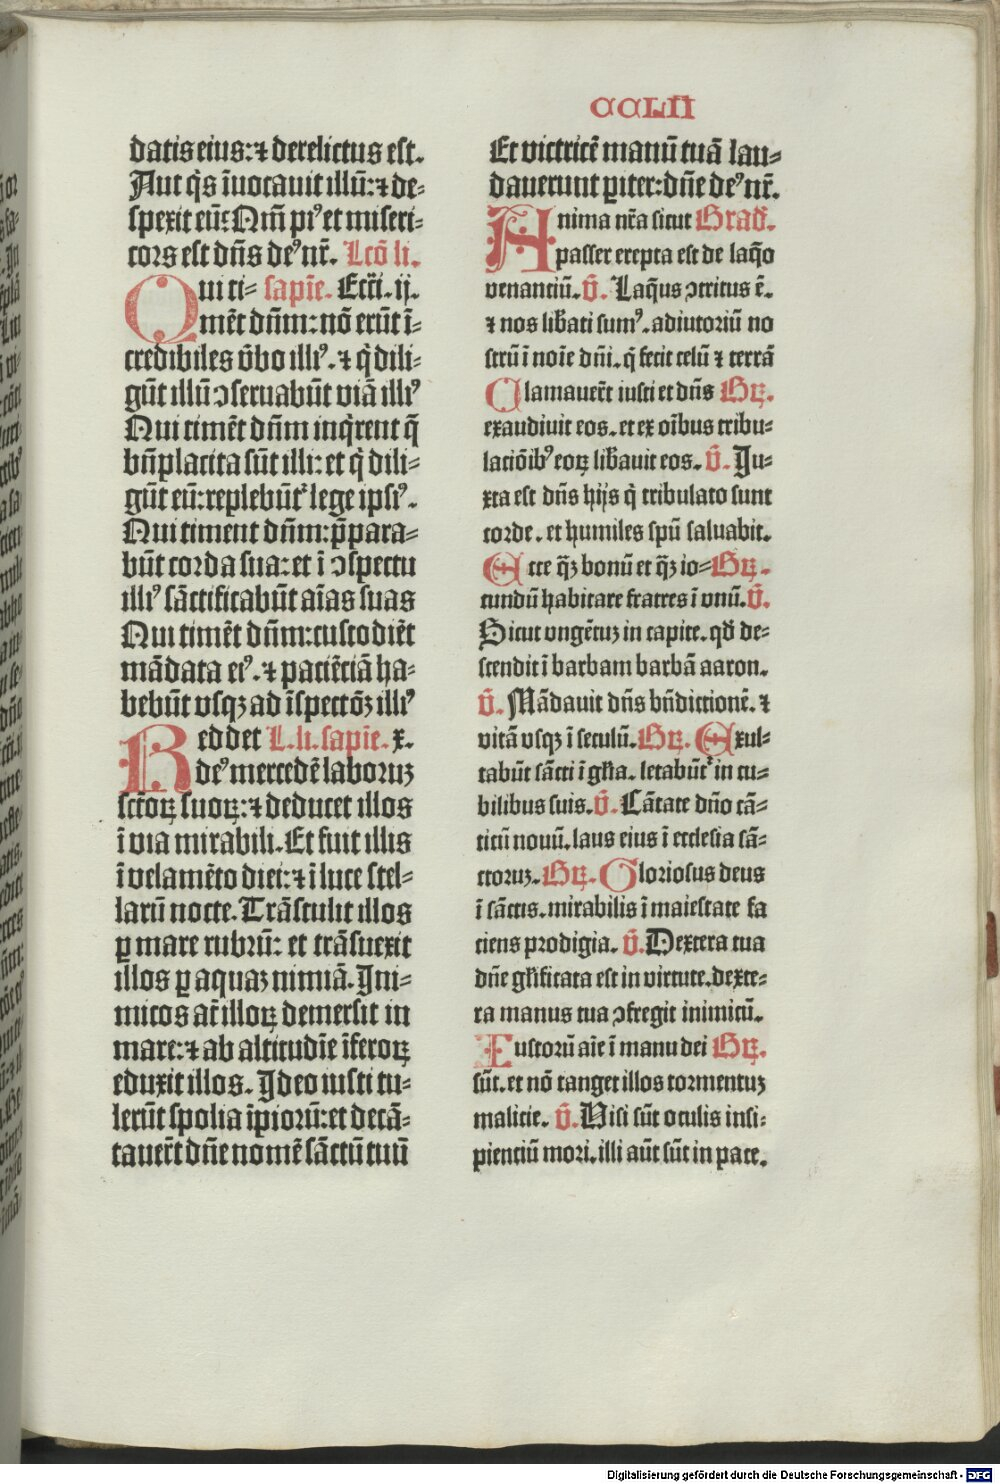 CCLII
datis eius: ⁊ derelictus est.
Aut q̄s īuocauit illū: ⁊ de⸗
spexit eū: Qm̄ piꝰ et miseri⸗
cors est dn̄s deꝰ nr̄. Lcō li.
Qui ti⸗ sapīe. Ecc̄i. ij.
mēt dn̄m: nō erūt ī⸗
credibiles v̄bo illiꝰ. ⁊ q̄ dili⸗
gūt illū ↄseruabūt viā illiꝰ
Qui timēt dn̄m inq̄rent q̄
bn̄placita sūt illi: et q̄ dili⸗
gūt eū: replebūt᷑ lege ipsiꝰ.
Qui timent dn̄m: p̄para⸗
būt corda sua: et ī ↄspectu
illiꝰ sāctificabūt aīas suas
Qui timēt dn̄m: custodiēt
mādata eiꝰ. ⁊ paciēciā ha⸗
bebūt vsqꝫ ad īspectōꝫ illiꝰ
Reddet L. li. sapīe. x.
deꝰ mercedē laboruꝫ
sctōꝝ suoꝝ: ⁊ deducet illos
ī via mirabili. Et fuit illis
ī velamēto diei: ⁊ ī luce stel⸗
larū nocte. Trāstulit illos
ꝑ mare rubrū: et trāsuexit
illos ꝑ aquaꝫ nimiā. Ini⸗
micos at̄ illoꝝ demersit in
mare: ⁊ ab altitudīe īferoꝝ
eduxit illos. Ideo iusti tu⸗
lerūt spolia īpiorū: et decā⸗
tauer̄t dn̄e nomē sāctū tuū
Et victricē manū tuā lau⸗
dauerunt ꝑiter: dn̄e deꝰ nr̄.
Anima nr̄a sicut Grad̄.
passer erepta est de laq̄o
venanciū. v̄. Laq̄us ↄtritus ē.
⁊ nos lib̄ati sumꝰ. adiutoriū no
strū ī noīe dn̄i. q̄ fecit celū ⁊ terrā
Clamauer̄t iusti et dn̄s Gꝝ.
exaudiuit eos. et ex oībus tribu⸗
lacōībꝰ eoꝝ lib̄auit eos. v̄. Iu⸗
xta est dn̄s hijs q̄ tribulato sunt
corde. et humiles spū saluabit.
Ecce q̄ꝫ bonū et q̄ꝫ io⸗ Gꝝ.
cundū habitare fratres ī vnū. v̄.
Sicut vngētuꝫ in capite. qd̄ de⸗
scendit ī barbam barbā aaron.
v̄. Mādauit dn̄s bn̄dictionē. ⁊
vitā vsqꝫ ī seculū. Gꝝ. Exul⸗
tabūt sācti ī gl̄ia. letabūt᷑ in cu⸗
bilibus suis. v̄. Cātate dn̄o cā⸗
ticū nouū. laus eius ī ecclesia sā⸗
ctoruꝫ. Gꝝ. Gloriosus deus
ī sāctis. mirabilis ī maiestate fa
ciens prodigia. v̄. Dextera tua
dn̄e gl̄ificata est in virtute. dexte⸗
ra manus tua ↄfregit inimicū.
Iustorū aīe ī manu dei Gꝝ.
sūt. et nō tanget illos tormentuꝫ
malicie. v̄. Visi sūt oculis insi⸗
pienciū mori. illi aūt sūt in pace.
Digitalisierung gefördert durch die Deutsche Forschungsgemeinschaft - DFG